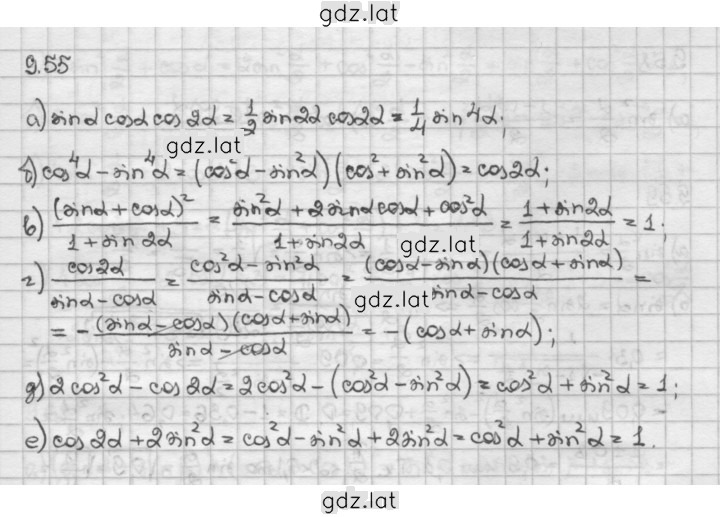 gdz.lat
9.55
а) sinα cosα cos2α = 1/2 sin2α cos2α = 1/4 sin4α;
gdz.lat
б) cos⁴α − sin⁴α = (cos²α − sin²α)(cos² + sin²α) = cos2α;
в) (sinα + cosα)²/(1 + sin2α) = (sin²α + 2sinα cosα + cos²α)/(1 + sin2α) = (1 + sin2α)/(1 + sin2α) = 1;
gdz.lat
г) cos2α/(sinα − cosα) = (cos²α − sin²α)/(sinα − cosα) = (cosα − sinα)(cosα + sinα)/(sinα − cosα) =
gdz.lat
= −(sinα − cosα)(cosα + sinα)/(sinα − cosα) = −(cosα + sinα);
д) 2cos²α − cos2α = 2cos²α − (cos²α − sin²α) = cos²α + sin²α = 1;
е) cos2α + 2sin²α = cos²α − sin²α + 2sin²α = cos²α + sin²α = 1.
gdz.lat